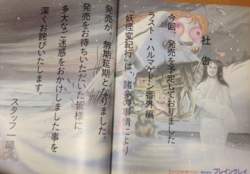 社告
今回、発売を予定しておりました
ラスト・ハルマゲドン番外編
妖怪変紀行は、諸々の事情により
発売が、無期延期となりました。
発売をお待ちいただいた皆様に
多大なご迷惑をおかけしました事を
深くお詫びいたします。
スタッフ一同
ブレイングレイ